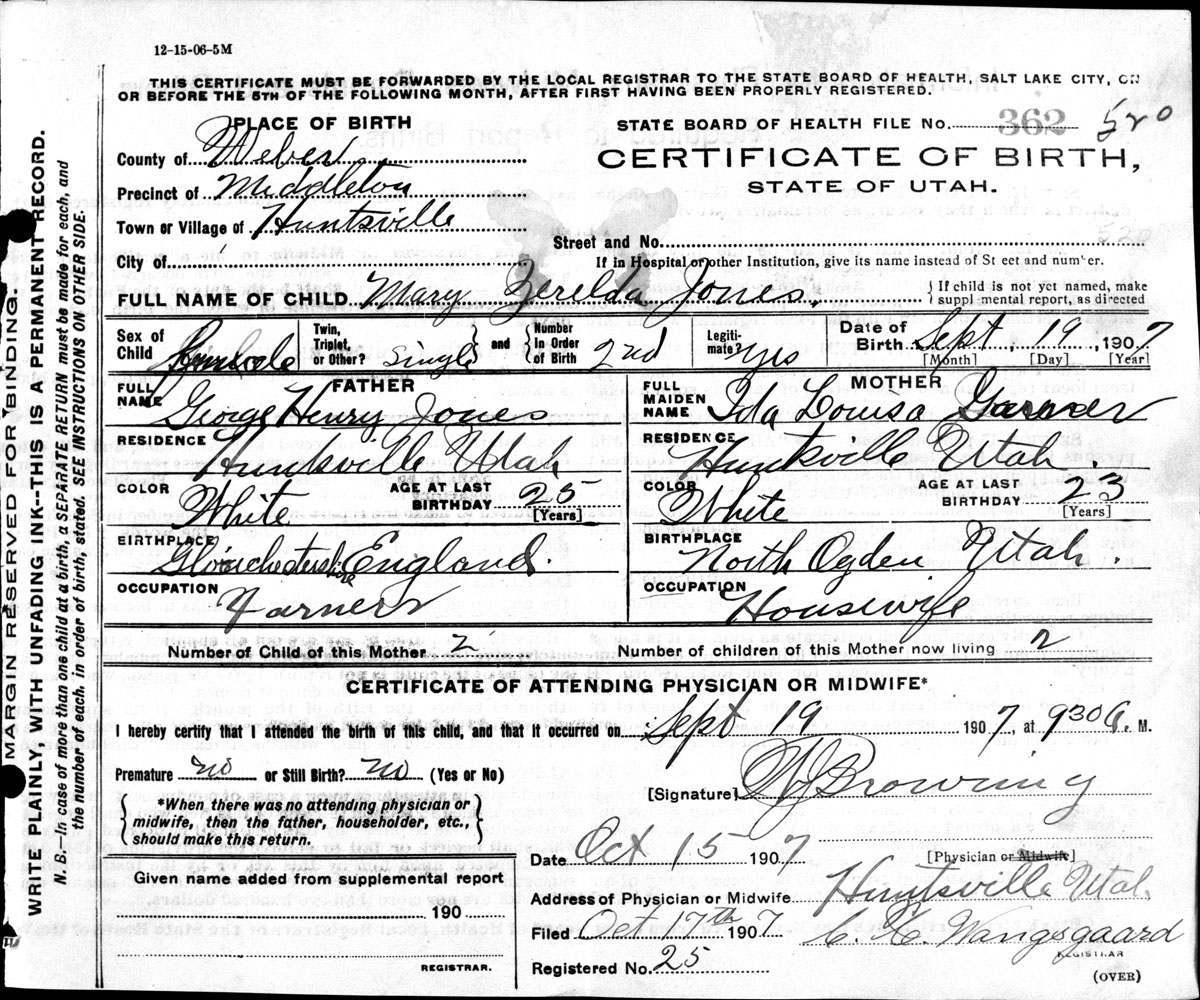 12-15-06-5M
THIS CERTIFICATE MUST BE FORWARDED BY THE LOCAL REGISTRAR TO THE STATE BOARD OF HEALTH, SALT LAKE CITY, ON
OR BEFORE THE 5TH OF THE FOLLOWING MONTH, AFTER FIRST HAVING BEEN PROPERLY REGISTERED.
PLACE OF BIRTH
STATE BOARD OF HEALTH FILE No. 362 520
County of Weber
CERTIFICATE OF BIRTH,
Precinct of Middleton
STATE OF UTAH.
Town or Village of Huntsville
Street and No.
520
City of
If in Hospital or other Institution, give its name instead of St eet and number.
FULL NAME OF CHILD Mary Zerelda Jones.
{ If child is not yet named, make
suppl mental report, as directed
Sex of Child Female
Twin, Triplet, or Other? Single
and { Number In Order of Birth 2nd
Legiti- mate? yes
Date of Birth Sept, 19, 1907
[Month] [Day] [Year]
FATHER
FULL NAME George Henry Jones
RESIDENCE Huntsville Utah
COLOR White
AGE AT LAST BIRTHDAY 25
[Years]
BIRTHPLACE England.
OCCUPATION Farmer
MOTHER
FULL MAIDEN NAME Ida Louisa
RESIDENCE Huntsville Utah.
COLOR White
AGE AT LAST BIRTHDAY 23
[Years]
BIRTHPLACE North Ogden Utah.
OCCUPATION Housewife
Number of Child of this Mother 2
Number of children of this Mother now living 2
CERTIFICATE OF ATTENDING PHYSICIAN OR MIDWIFE*
I hereby certify that I attended the birth of this child, and that it occurred on Sept 19 1907, at 930 a. M.
Premature no or Still Birth? no (Yes or No)
[Signature] Browning
{ *When there was no attending physician or
midwife, then the father, householder, etc.,
should make this return. }
[Physician or Midwife]
Date Oct 15 1907
Address of Physician or Midwife Huntsville Utah.
Given name added from supplemental report
190
REGISTRAR.
Filed Oct 17th 1907 C. C. Wangsgaard
REGISTRAR
Registered No. 25
(OVER)
MARGIN RESERVED FOR BINDING.
WRITE PLAINLY, WITH UNFADING INK--THIS IS A PERMANENT RECORD.
N. B.—In case of more than one child at a birth, a SEPARATE RETURN must be made for each, and
the number of each, in order of birth, stated. SEE INSTRUCTIONS ON OTHER SIDE.